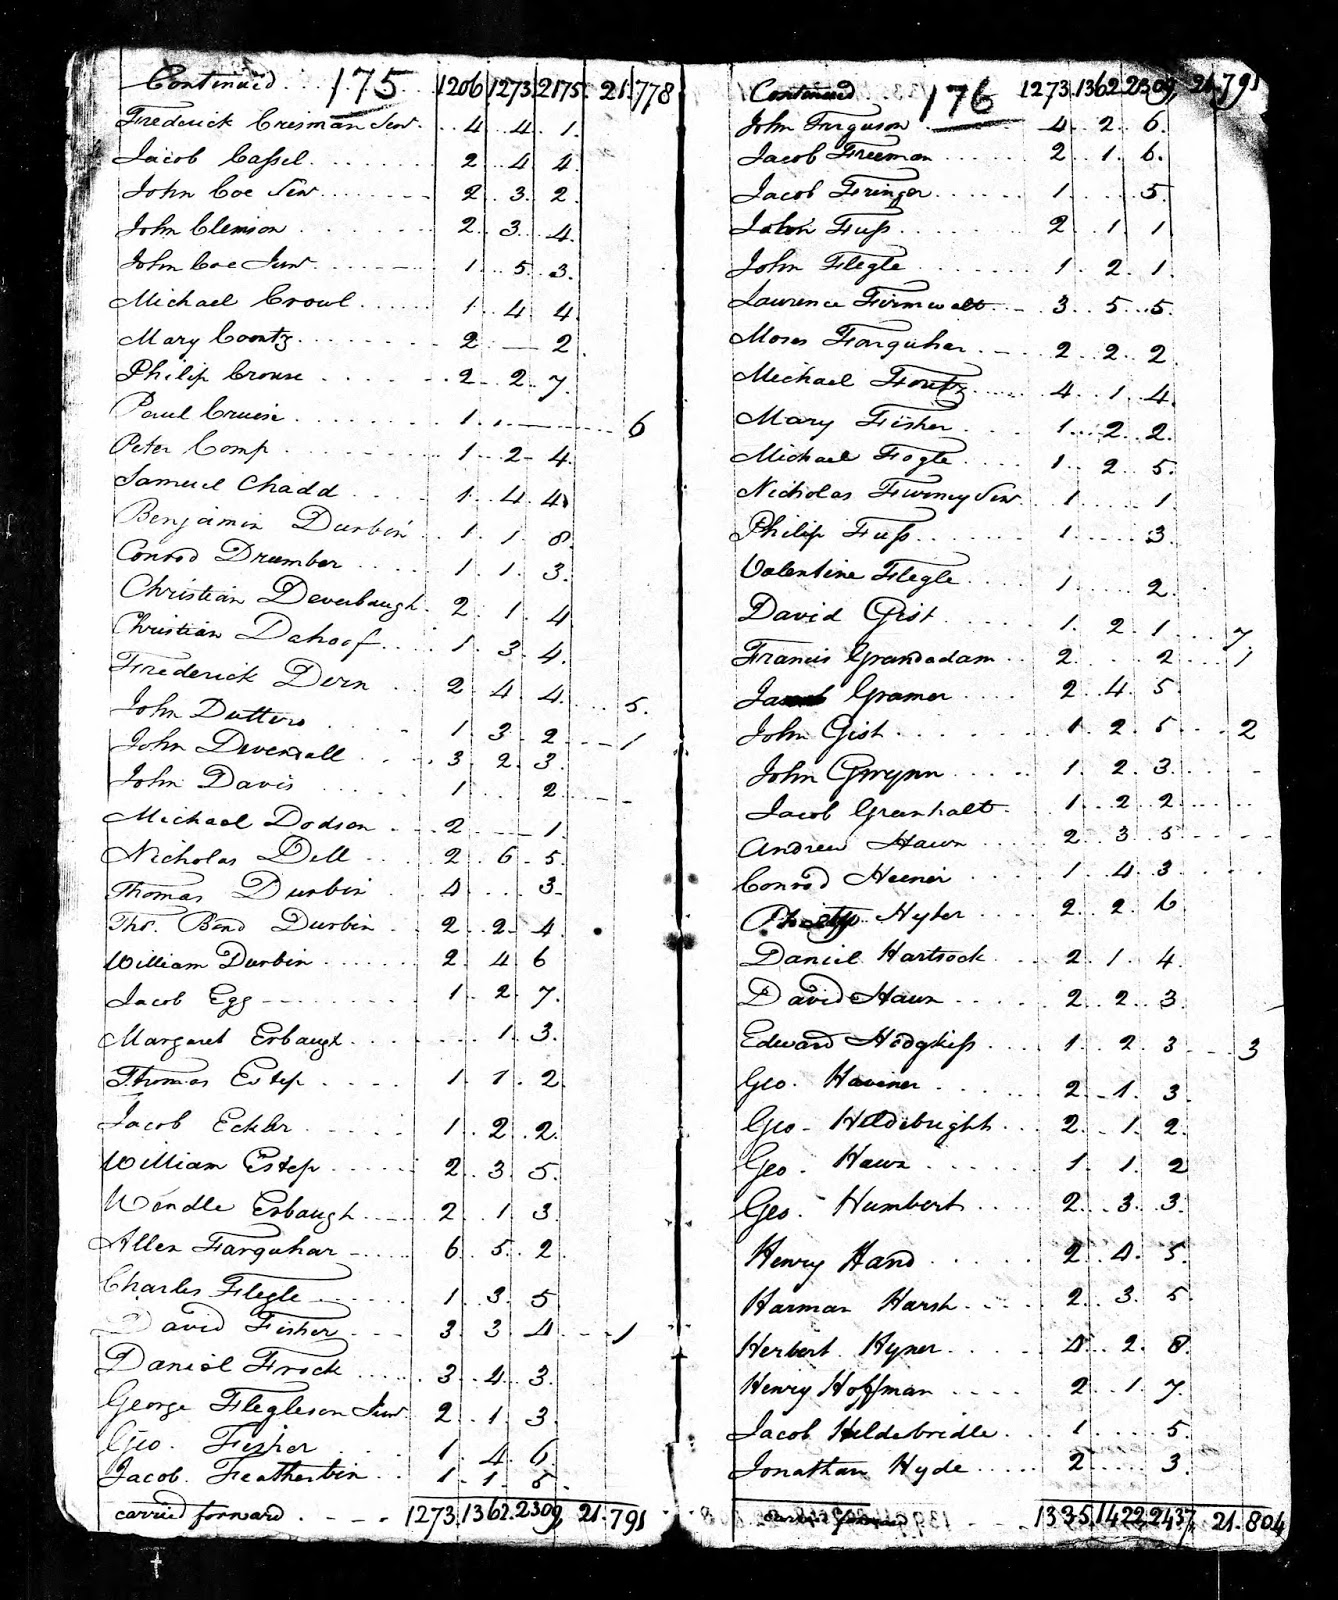 Continued 175 1206 1273 2175 21 778
Frederick Crisman Senr 4 4 1
Jacob Cassel 2 4 4
John Coe Senr 2 3 2
John Clemson 2 3 4
John Coe Junr 1 5 3
Michael Crowl 1 4 4
Mary Coontz 2 — 2
Philip Crouse 2 2 7
Paul Cruise 1 6
Peter Comp 1 2 4
Samuel Chadd 1 4 4
Benjamin Durbin 1 1 8
Conrod Drumber 1 1 3
Christian Deverbaugh 2 1 4
Christian Dahoof 1 3 4
Frederick Dern 2 4 4 5
John Dutters 1 3 2 1
John Deverall 3 2 3
John Davis 1 2
Michael Dodson 2 — 1
Nicholas Dell 2 6 5
Thomas Durbin 4 3
Thos. Bend Durbin 2 2 4
William Durbin 2 4 6
Jacob Egg 1 2 7
Margaret Erbaugh 1 3
Thomas Estep 1 1 2
Jacob Eckler 1 2 2
William Estep 2 3 5
Wendle Erbaugh 2 1 3
Allen Farquhar 6 5 2
Charles Flegle 1 3 5
David Fisher 3 3 4 1
Daniel Frock 3 4 3
George Flegleson Junr 2 1 3
Geo. Fisher 1 4 6
Jacob Featherbin 1 1 5
carried forward 1273 1362 2309 21 791
Continued 176 1273 1362 2309 21 791
John Furguson 4 2 6
Jacob Freeman 2 1 6
Jacob Fringer 1 5
John Fuss 2 1 1
John Flegle 1 2 1
Laurence Firmwalt 3 5 5
Moses Farquhar 2 2 2
Michael Foutz 4 1 4
Mary Fisher 1 2 2
Michael Fogle 1 2 5
Nicholas Furney Senr 1 1
Philip Fuss 1 3
Valentine Flegle 1 2
David Gist 1 2 1 7
Francis Grandadam 2 2 1
Jacob Gramer 2 4 5
John Gist 1 2 5 2
John Gwynn 1 2 3
Jacob Greenhalt 1 2 2
Andrew Hawn 2 3 5
Conrod Heener 1 4 3
Hyter 2 2 6
Daniel Hartsock 2 1 4
David Hawn 2 2 3
Edward Hodgkiss 1 2 3 3
Geo. Haviner 2 1 3
Geo. Hildebright 2 1 2
Geo. Hawn 1 1 2
Geo. Humbert 2 3 3
Henry Hand 2 4 5
Harman Harsh 2 3 5
Herbert Hyner 4 2 8
Henry Hoffman 2 1 7
Jacob Hildebridle 1 5
Jonathan Hyde 2 3
1335 1422 2437 21 804